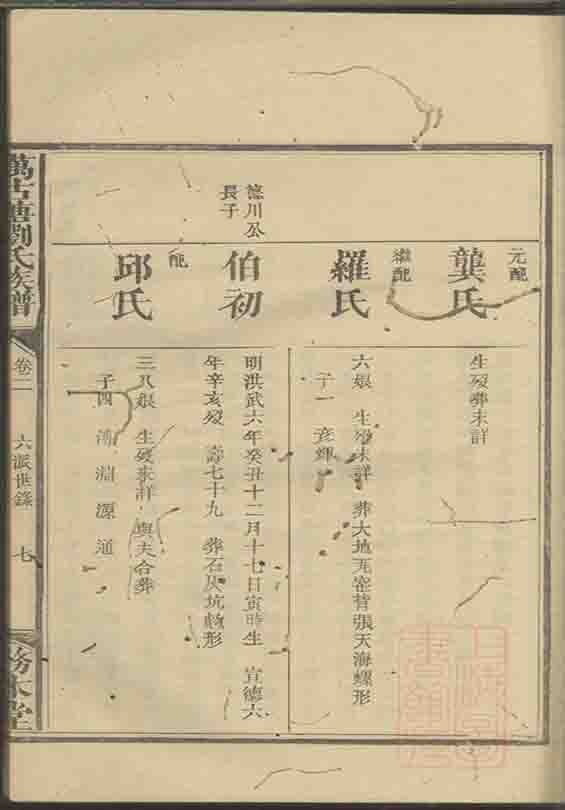 元配
龔氏
生殁葬未詳
繼配
羅氏
六娘 生殁未詳 葬大地瓦窑背張天海螺形
子一 彥輝
德川公
長子
伯初
明洪武六年癸丑十二月十七日寅時生 宣德六
年辛亥殁 壽七十九 葬石灰坑 形
配
邱氏
三八娘 生殁未詳 與夫合葬
子四 淵 源 通
萬古塘劉氏族譜
卷二
六派世錄
七
務本堂